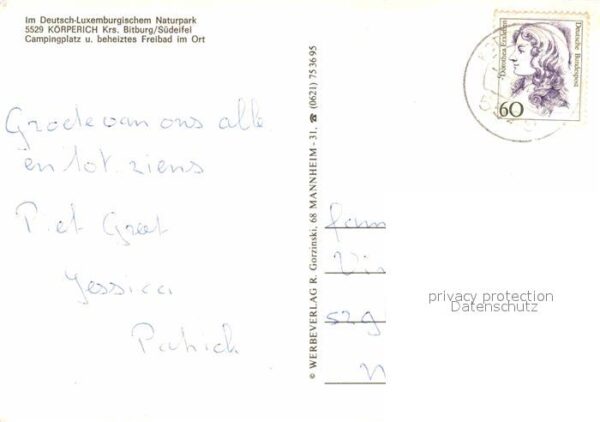 Im Deutsch-Luxemburgischem Naturpark
5529 KÖRPERICH Krs. Bitburg/Südeifel
Campingplatz u. beheiztes Freibad im Ort
Dorothea Erxleben
Deutsche Bundespost
60
Groete van ons alle
en tot ziens
P. et Greet
Jessica
Patrick
© WERBEVERLAG R. Gorzinski, 68 MANNHEIM - 31, ☎ (0621) 75 36 95
fam
privacy protection
Datenschutz